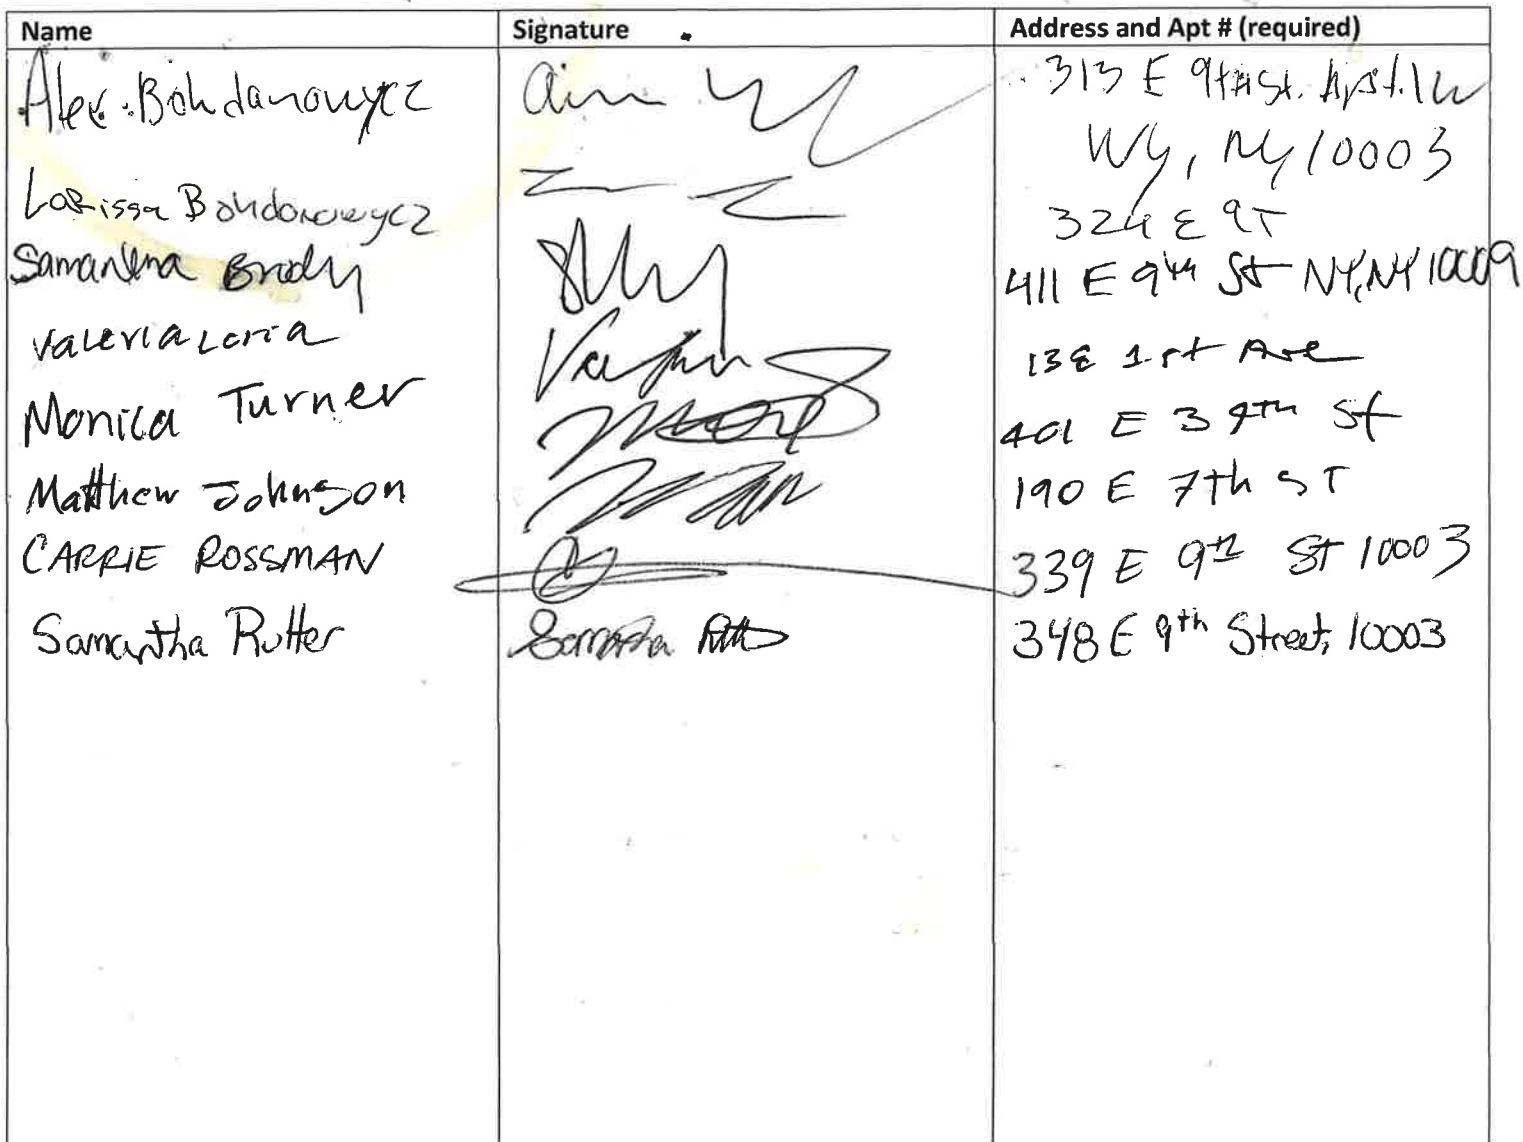 Name Signature Address and Apt # (required)
Alex Bohdanowycz 313 E 9th St. Apt. 1W
NY, NY 10003
Larissa Bohdonowycz 324 E 9T
Samantha Brody 411 E 9th St NY, NY 10009
Valeria Loria 13E 1st Ave
Monica Turner 401 E 39th St
Matthew Johnson 190 E 7th ST
CARRIE ROSSMAN 339 E 9th St 10003
Samantha Rutter Samantha 348 E 9th Street, 10003